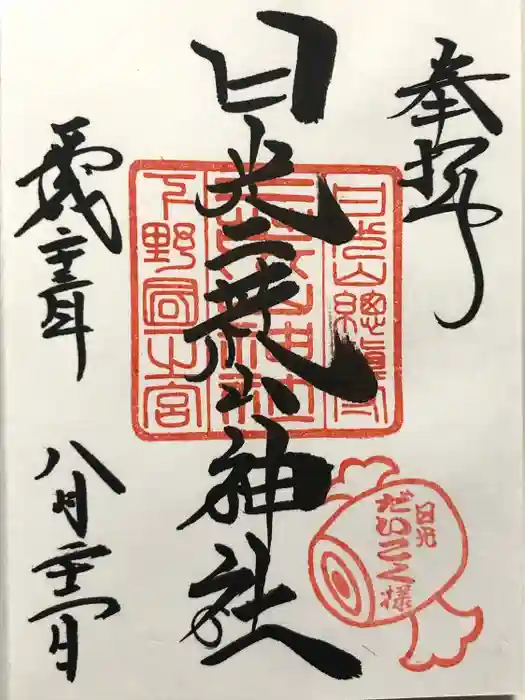 奉拝
日光二荒山神社
平成二十五年
八月二十一日
日光山總鎮守
二荒山神社
下野國一之宮
日光
だいこく様